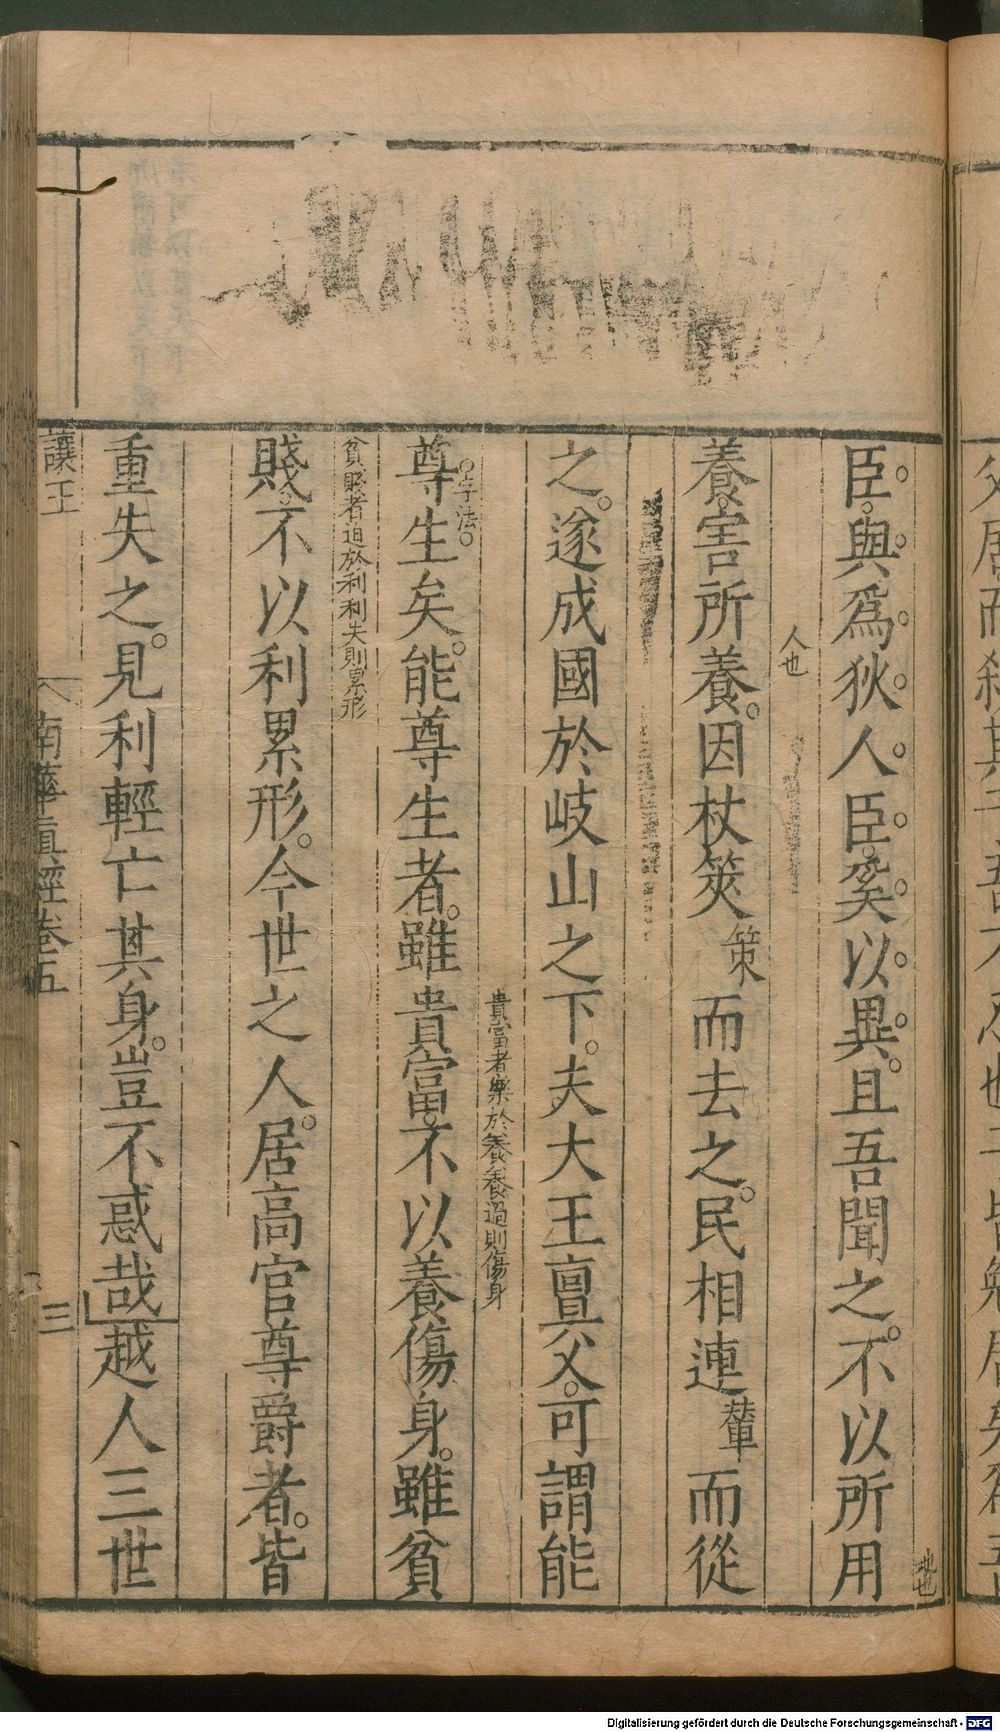 臣與爲狄人臣奚以異且吾聞之不以所用
地也
人也
養害所養因杖筴策而去之民相連輦而從
之遂成國於岐山之下夫大王亶父可謂能
貴富者樂於養養過則傷身
字法
尊生矣能尊生者雖貴富不以養傷身雖貧
貧賤者迫於利利失則累形
賤不以利累形今世之人居高官尊爵者皆
重失之見利輕亡其身豈不惑哉越人三世
讓王
南華眞經卷五
三
Digitalisierung gefördert durch die Deutsche Forschungsgemeinschaft - DFG